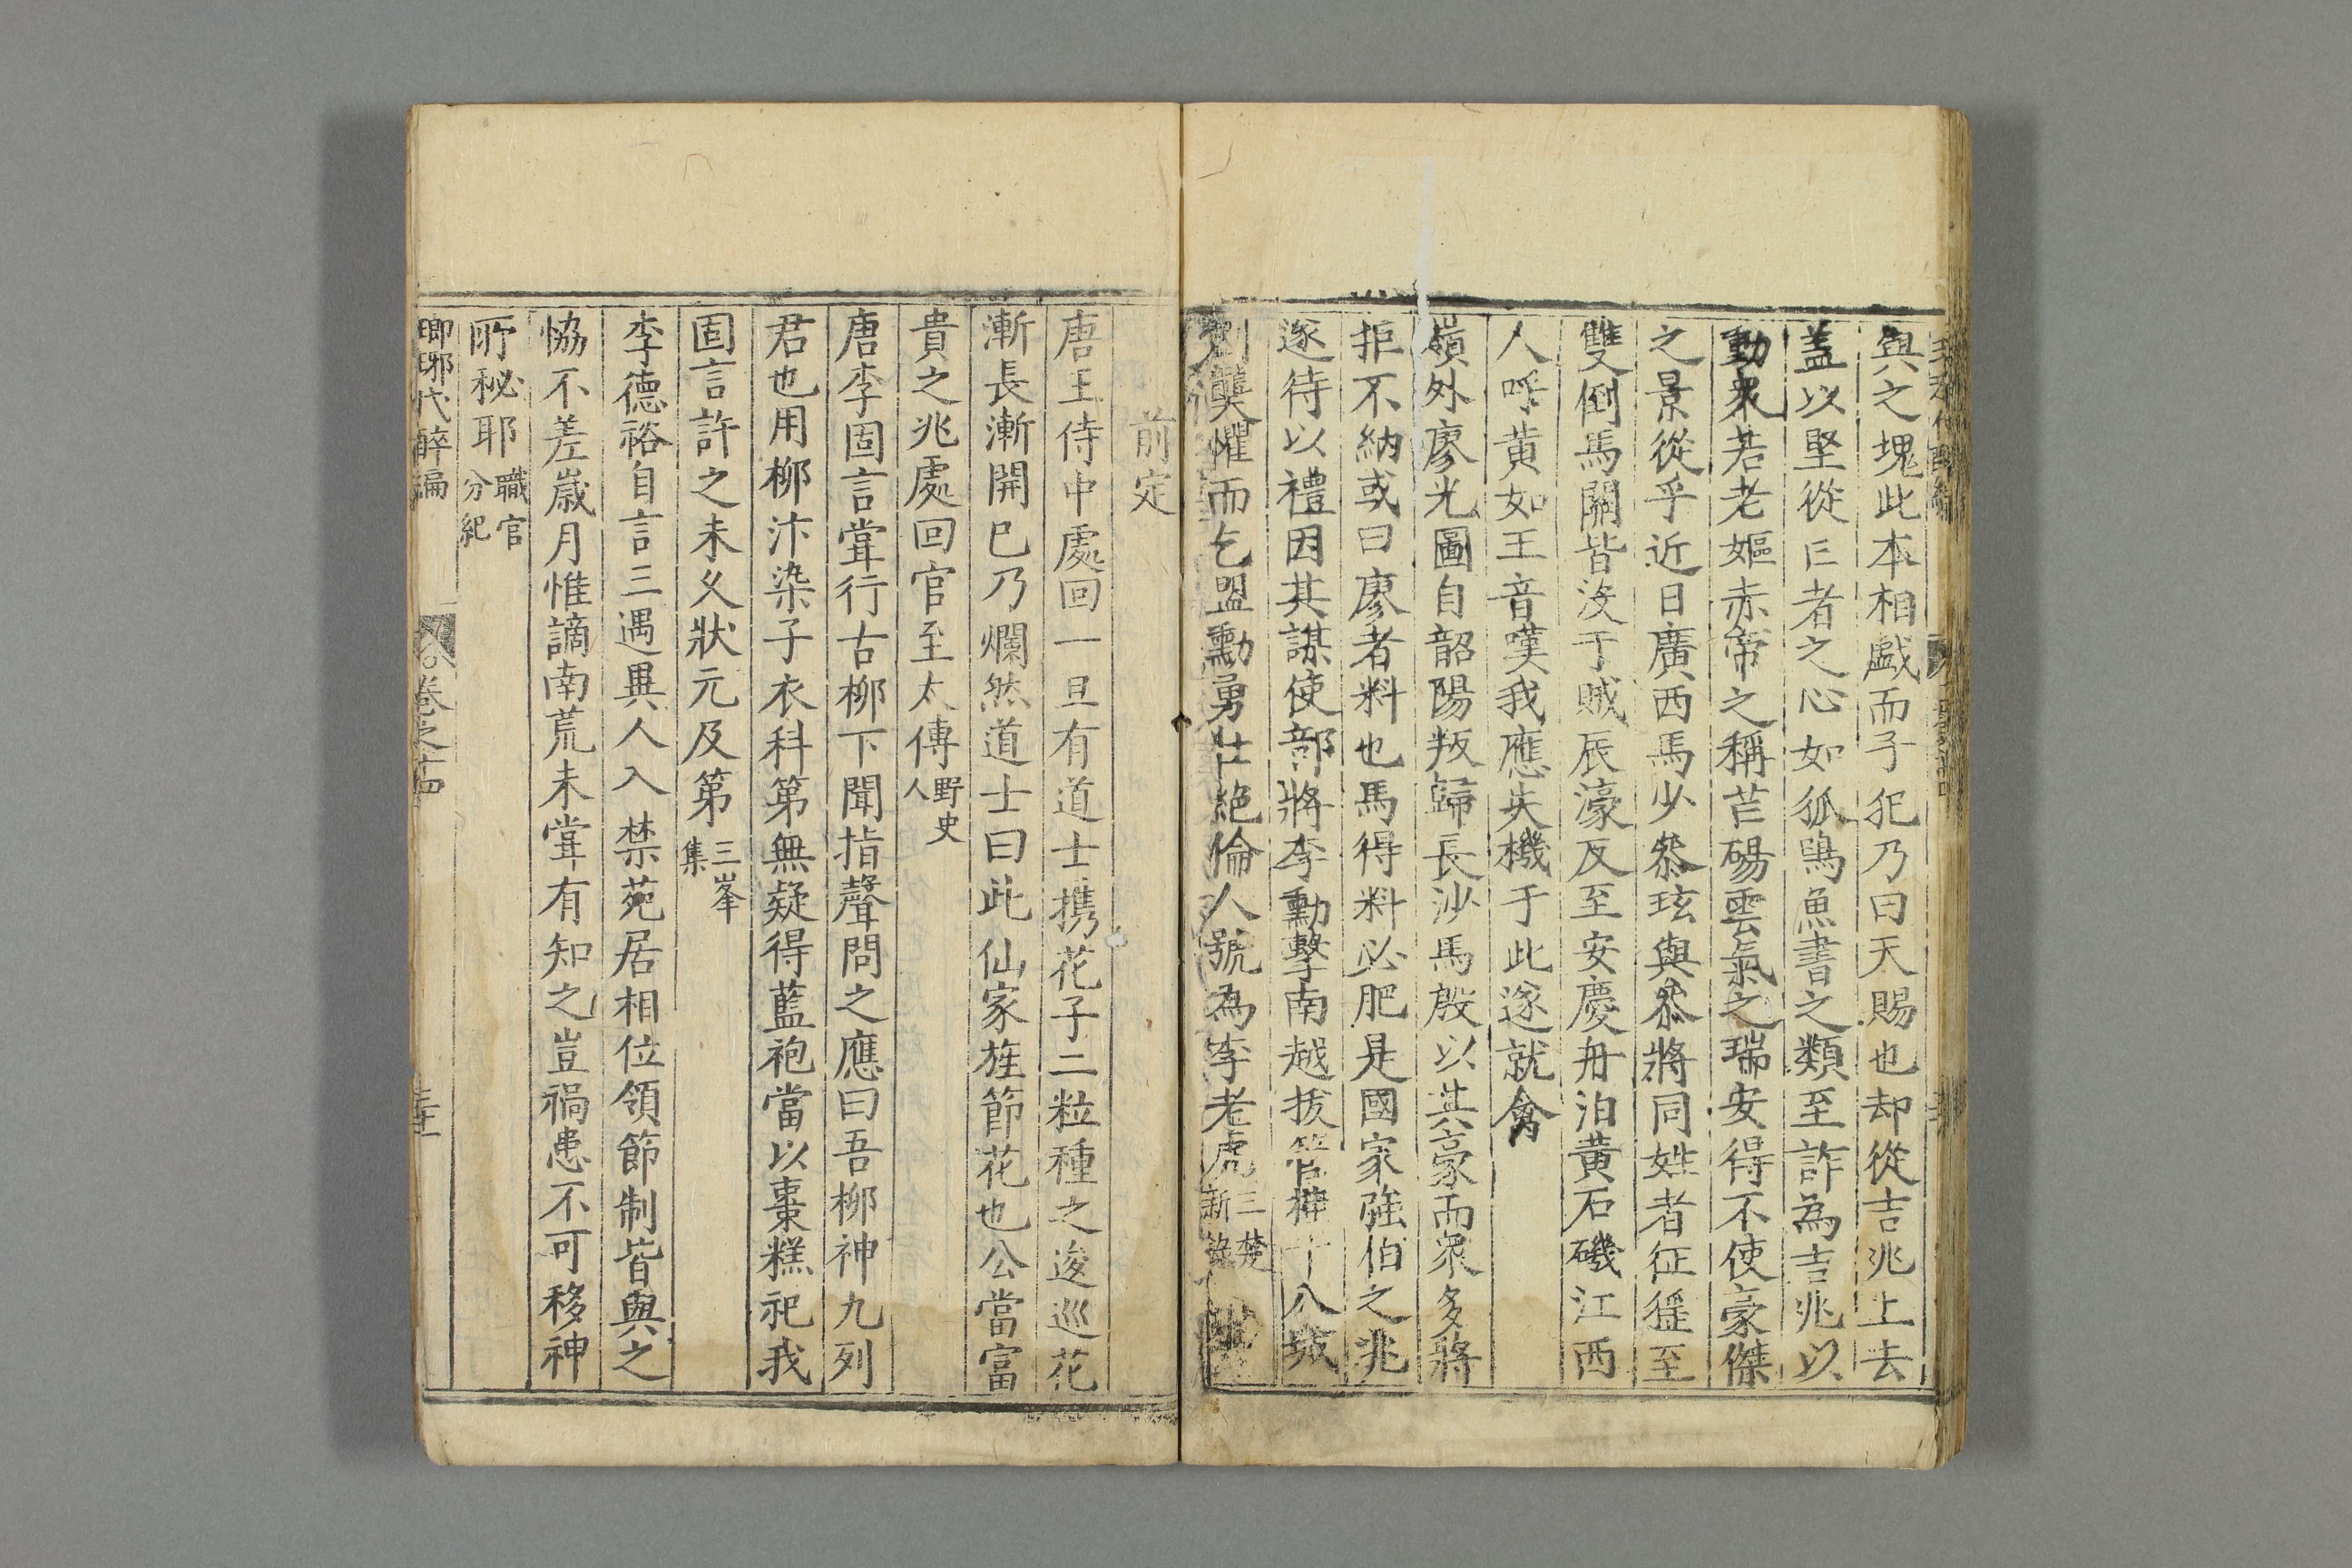 與之塊此本相戲而子犯乃曰天賜也却從吉兆上去
蓋以堅從亡者之心如狐鳴魚書之類至詐為吉兆以
動衆若老嫗赤帝之稱芒碭雲氣之瑞安得不使豪傑
之景從乎近日廣西馬少叅玹與叅將同姓者征猺至
雙倒馬關皆没于賊辰濠反至安慶舟泊黄石磯江西
人呼黄如王音嘆我應失機于此遂就禽
嶺外廖光圖自韶陽叛歸長沙馬殷以其豪而衆多將
拒不納或曰廖者料也馬得料必肥是國家強伯之兆
遂待以禮因其謀使部將李勳擊南越拔管桂十八城
劉龑懼而乞盟勳勇壮絶倫人號為李老虎三楚新録
前定
唐王侍中處回一旦有道士携花子二粒種之逡巡花
漸長漸開已乃爛然道士曰此仙家旌節花也公當富
貴之兆處回官至太傅野史人
唐李固言嘗行古栁下聞指聲問之應曰吾栁神九列
君也用栁汴染子衣科第無疑得藍袍當以棗糕祀我
固言許之未乆狀元及第三峯集
李德裕自言三遇異人入禁苑居相位領節制皆與之
恊不差歲月惟謫南荒未嘗有知之豈禍患不可移神
所秘耶職官分紀
瑯琊代醉編 卷之十四 三十一